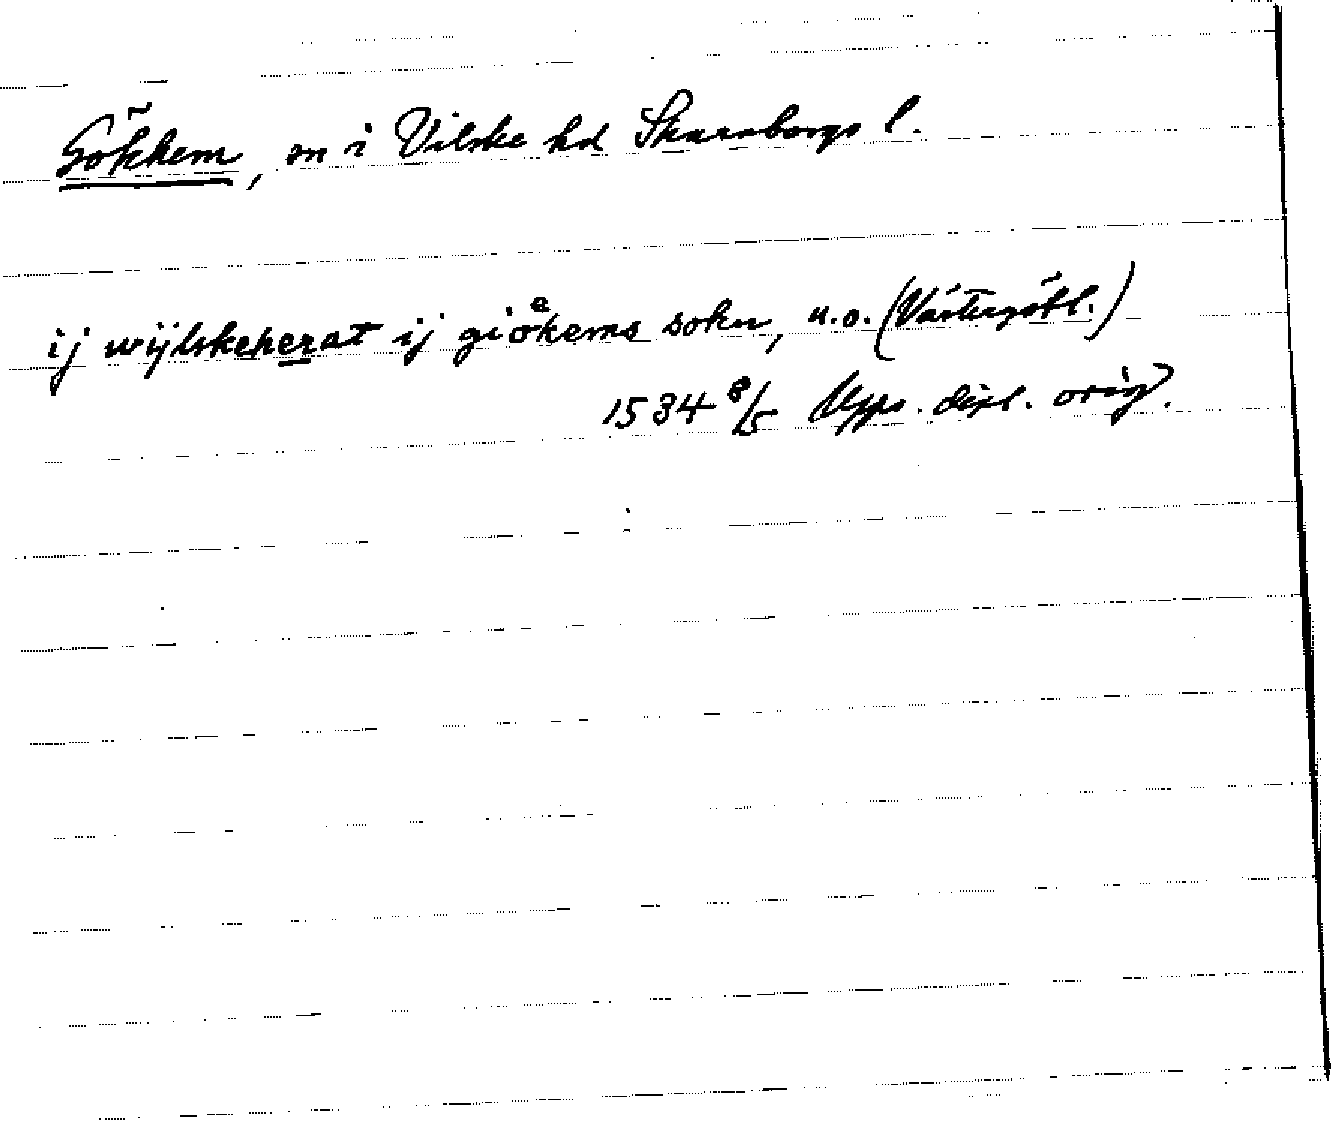 Gökhem, sn i Vilske hd Skaraborgs l.
ij wijlskeherat ij gioͤkems sokn, u.o. (Västergötl.)
1534 8/5 Upps. dipl. orig.